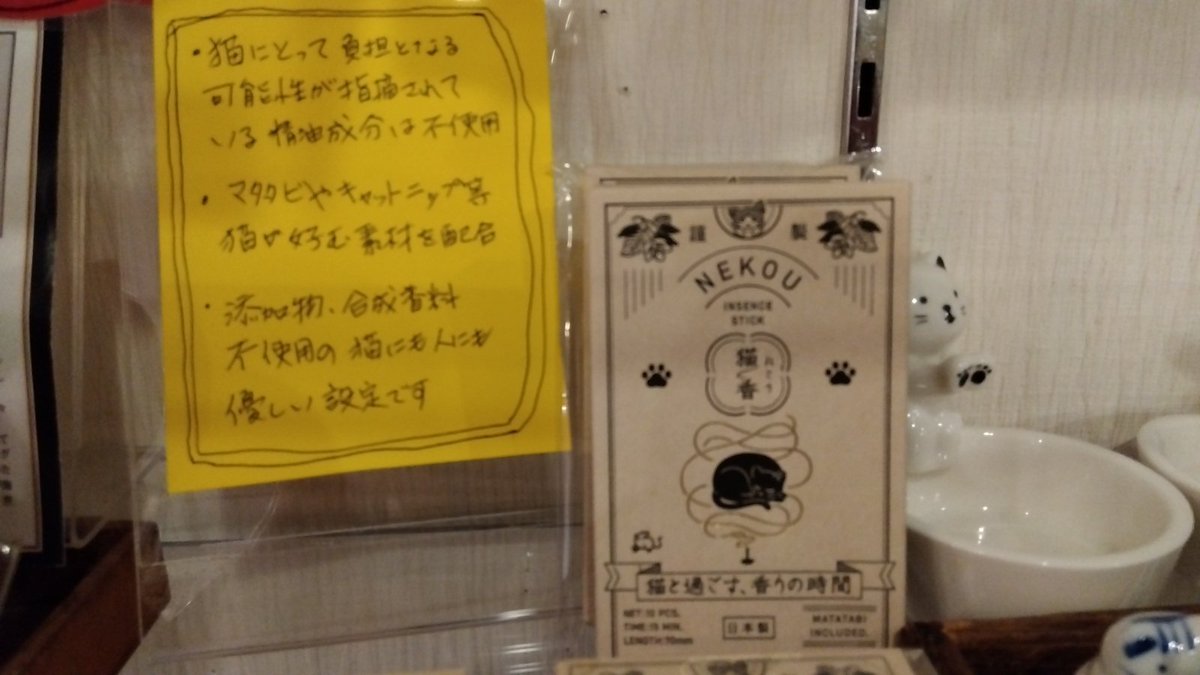 ・猫にとって負担となる
可能性が指摘されて
いる精油成分は不使用
・マタタビやキャットニップ等
猫が好む素材を配合
・添加物、合成香料
不使用の猫にも人にも
優しい設定です
謹製
NEKOU
INSENCE
STICK
猫香
ねこう
猫と過ごす、香りの時間
NET:10 PCS.
TIME:15 MIN.
LENGTH:70mm
日本製
MATATABI
INCLUDED.